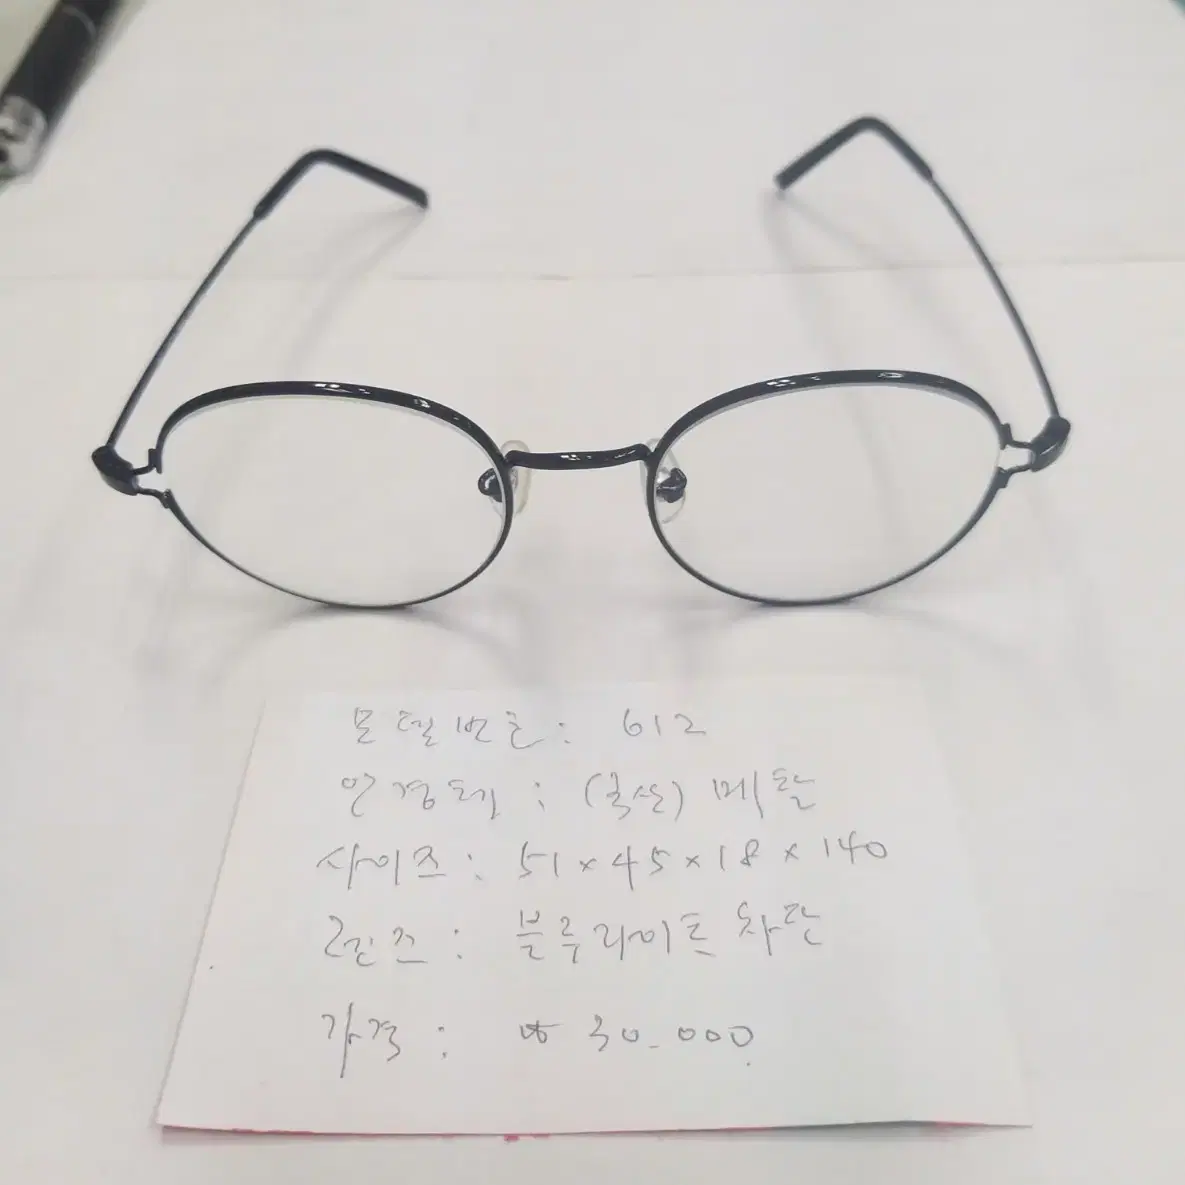 모델번호 : 612
안경테 : (국산) 메탈
사이즈 : 51 x 45 x 18 x 140
렌즈 : 블루라이트 차단
가격 : ₩ 30.000